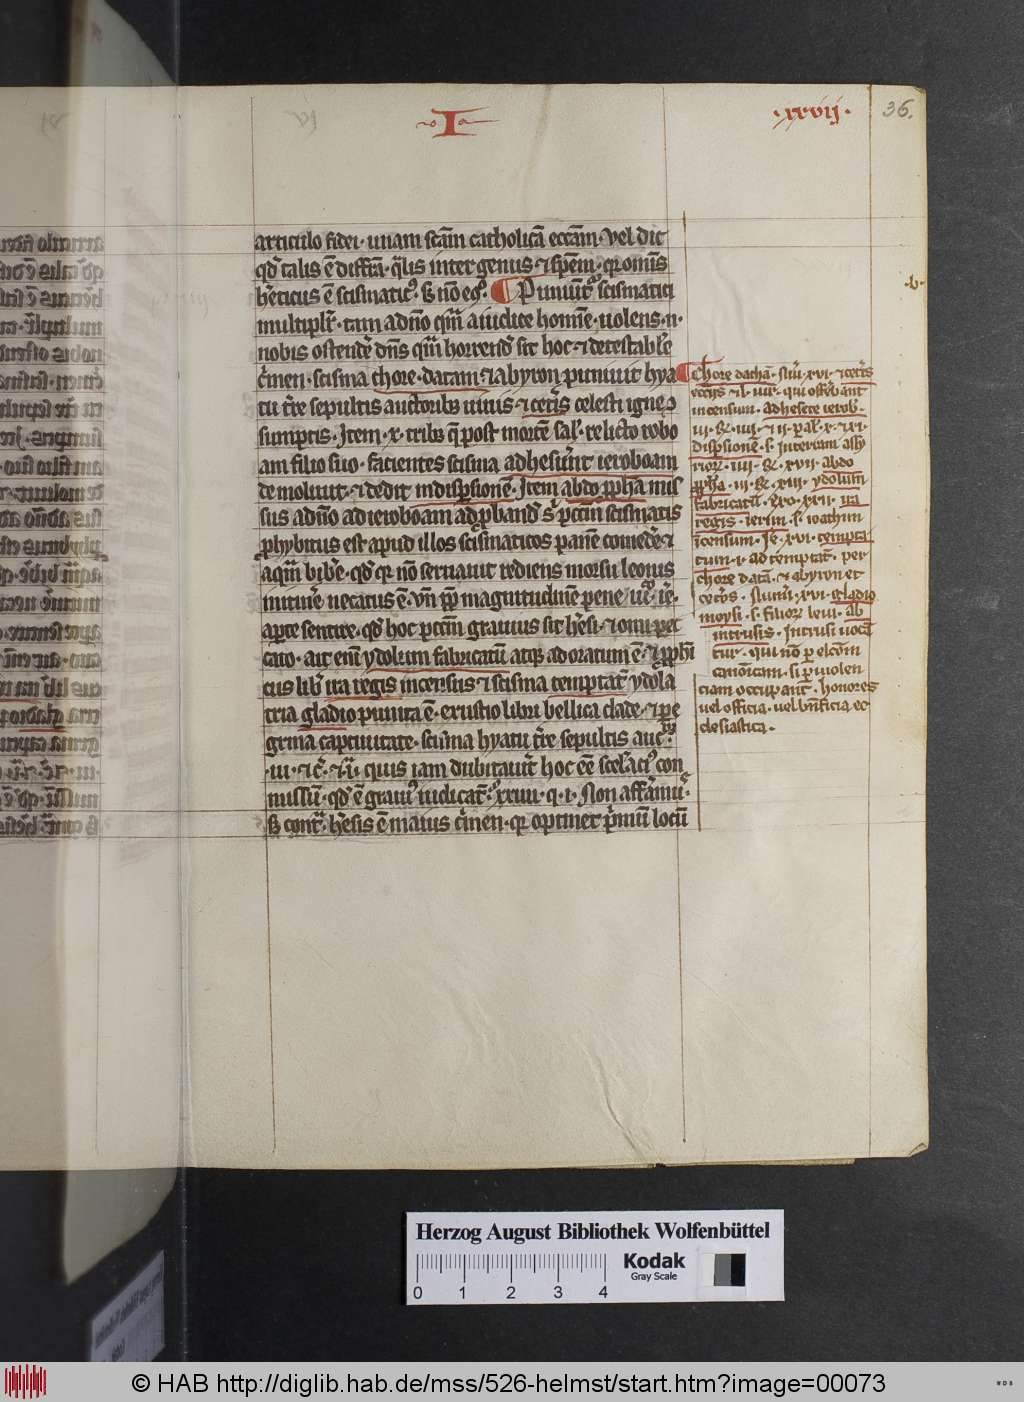 I
·xxvij·
36.
articulo fidei· unam scām catholicā eccām· vel dic
qđ talis ē diffr̄a· q̄lis inter genus ⁊ spēm· qr omīs
h̓eticus ē scismatic᷒· sꝫ nō eꝯ᷒· ¶ Puniūt᷒ scismatici
multiplr̄· tam a dn̄o qm̄ a iudice homīe· uolens· n·
nobis ostendē dn̄s qm̄ horrend᷒ sit hoc ⁊ detestabłe
c̓men· scisma chore· datam· ⁊ abyron puniuit hya
tu t̄re sepultis auctoribꝫ uiuis ⁊ cet̓is celesti igne ꝯ
sumptis· Item· x· tribꝫ q̄ post mortē sal᷒· relicto robo
am filio suo· facientes scisma adheser̄nt ieroboam
demoliuit· ⁊ dedit in disp̱sionē· Item abdo ꝓpha mis
sus a dn̄o ad ieroboam ad ꝓbandū s᷒ pcc̄m scismatis
ꝓhybitus est apud illos scismaticos panē comedē ⁊
aq̄m bibe̓· qđ qr nō seruauit rediens morsu leonis
in itine̓ necatus ē· vn̄ sup̱ magnitudinē pene
aperte sentire· qđ hoc pcc̄m grauius sit h̓esi· ⁊ omi pec
cato· ait em̄ ydolum fabricatū atqꝫ adoratum ē· ⁊ ꝓph̄i
cus lib̓ ira regis incensus ⁊ scisma temptat᷒ ydola
tria gladio punita ē· exustio libri bellica clade· ⁊ pe
grina captiuitate· scisma hyatu t̄re sepultis auc᷒
quis iam dubitau̓it hoc ēē scelaci᷒ con
missū· qđ ē graui᷒ iudicat᷒· xxiiii· q· i· Non affr̄amu᷒·
sꝫ cont᷒· h̓esis ē maius c̓men· qr optinet p̓mū locū
·b·
¶ Chore dathā· nūi· xvi· ⁊ cet̓is
incensum· adhesere ierob᷒·
disp̱sionē· s· interitum assy
rioꝝ· iiii· R· xvii· abdo
ꝓpha· iii· R· xiii· ydolum
fabricatū· exo· xxii· ira
regis· ierem· s· ioachim
īcensum· Je· xvi· tempta
tum· i· ad temptat᷒· per
chore datā· ⁊ abyron et
cet̓os· Num̓i· xvi· gladio
moysi· s· filioꝝ leui· ab
intrusis· Intrusi uocā
tur· qui nō p̱ elcōm
canoīcam· si p̱ uiolen
ciam occupant· honores
uel officia· uel bn̄ficia ec
clesiastica·
Herzog August Bibliothek Wolfenbüttel
Kodak
Gray Scale
0 1 2 3 4
© HAB http://diglib.hab.de/mss/526-helmst/start.htm?image=00073